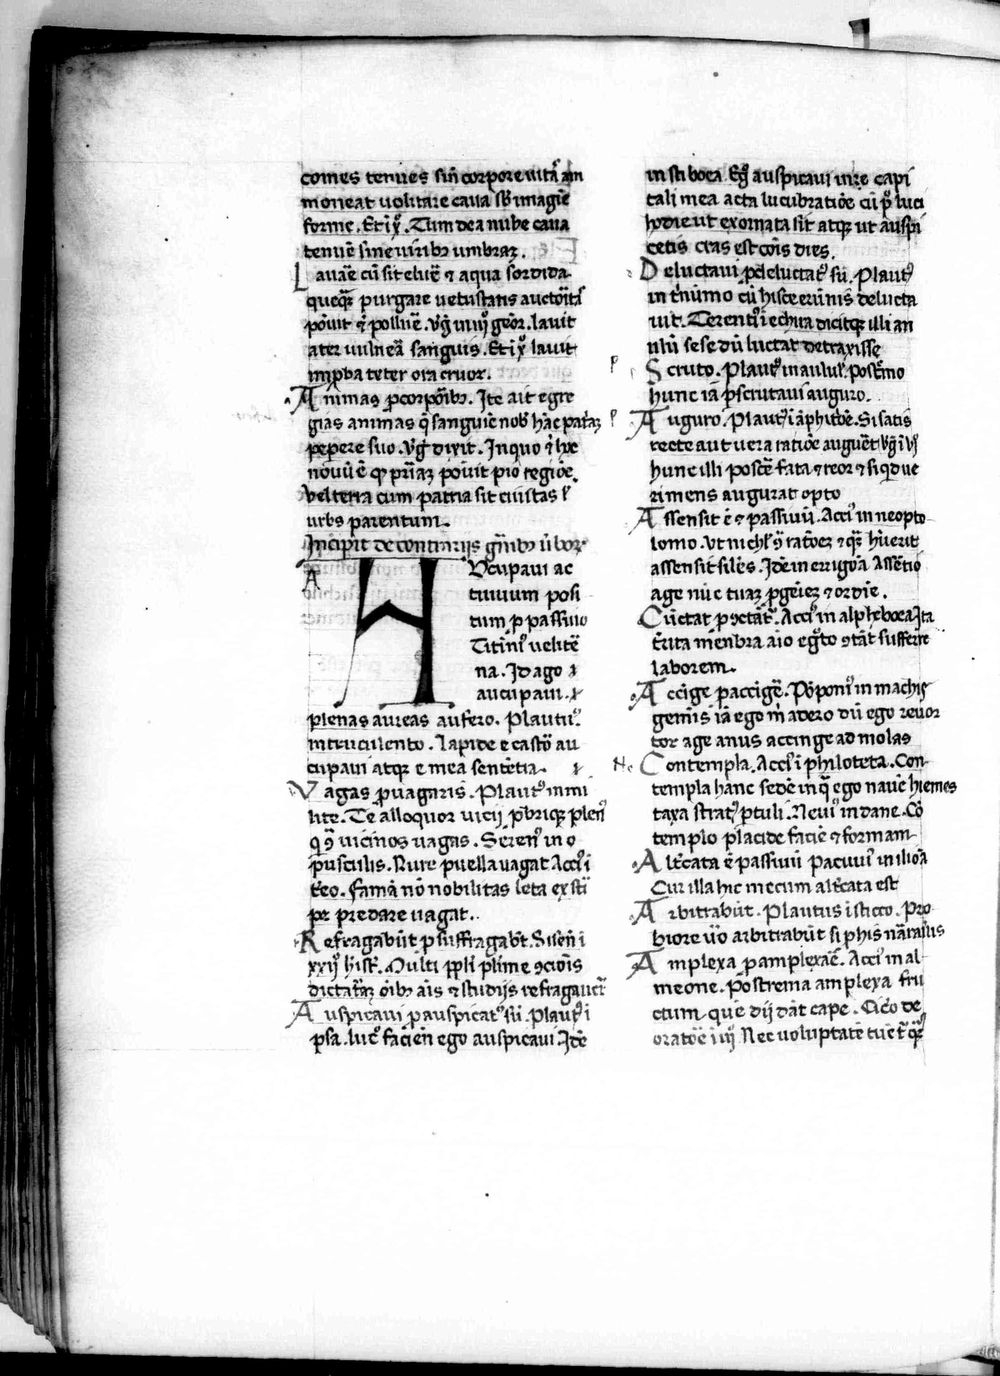 comes tenues sin̄ corpore uitā am
moneat uolitare caua sb̄ imagīe
forme. Et iꝯ. Tum dea nube caua
tenuē sine uiribꝫ umbraꝫ.
Lauaē cū sit eluē ⁊ aqua sordida
queqꝫ purgare uetustatis auctoritas
pōuit ꝓ polluē. Vḡ in iiij geor. lauit
ater uulnea sanguis. Et iꝯ lauit
impba teter ora cruor.
Animas ꝓ corporibꝫ. Itē ait egre
gias animas q̄ sanguīe nob̄ hāc patriaꝫ
pepere suo. Vḡ dixit. In quo ⁊ hoc
nouū ē ꝙ pr̄iaꝫ pōuit pro regiōe.
vel terra cum patria sit ciuitas l̄
urbs parentum.
Incipit de contrariis gn̄ibꝫ ūboꝝ
Aucupaui ac
tiuum posi
tum ꝓ passiuo
Titiniꝰ uelitē
na. Id ago
aucupaui.
plenas aureas aufero. Plautuꝰ.
in truculento. lapide e casto au
cupaui atqꝫ e mea sentētia.
Vagas ꝓ uagaris. Plautꝰ in mi
lite. Te alloquor uicij pbriqꝫ plenꝰ
uicinos uagas. Serenꝰ in o
pusculis. Rure puella uagat Acciꝰ i
fama nō nobilitas leta
predare uagat.
Refragabūt ꝓ suffragabt. Sisen̄ i
xxiij hist. Multi ppli plime ꝯcionis
dictataꝫ oībꝫ aīs ⁊ studiis refragauer̄
Auspicaui ꝓ auspicatꝰ sū. Plautꝰ i
psa. lucr̄ faciēn ego auspicaui. Idē
in sticboca. Eḡ auspicaui in re capi
tali mea acta lucubratiōe cū
hodie ut exornata sit atqꝫ ut auspi
cetis cras est cōis dies.
Deluctaui ꝓ deluctatꝰ sū. Plautꝰ
in trinūmo cū hisce erūnis delucta
uit. Terentiꝰ i echira dicitqꝫ illi an
nlū sese dū luctat detraxisse
Scruto. Plautꝰ in aulul. Postmo
hunc iā pscrutaui auguro.
Auguro. Plautꝰ i āphitōe. Si satis
recte aut uera ratiōe auguēt
hunc illi poscē fata ⁊ reor ⁊ si qd ue
ri mens augurat opto
Assensit ē ⁊ passiuū. Acciꝰ in neopto
lomo. Vt nichl
assensit siles. Idē in errigoā Assētio
age nūc tuaꝫ pgeiez ⁊ ordīe.
Cūctat ꝓ ꝯctat. Acciꝰ in alpheboea Ita
tr̄ita mēnbra aio egrōto ꝯtāt sufferre
laborem.
Accīge ꝓ accigē. Pōponiꝰ in machis
gemis iā ego m̄ adero dū ego reuor
tor age anus accinge ad molas
Contempla. Acciꝰ i philoteta. Con
templa hanc sedē in q̄ ego nauē hiemes
saxa stratꝰ ptuli. Neuiꝰ in dane. Cō
templo placide faciē ⁊ formam
Altr̄cata ē passiuū pacuuiꝰ in iliōa
Cur illa hic mecum altr̄cata est
Arbitrabūt. Plautus i sticco. Pro
biore uō arbitrabūt si phis
Amplexa ꝓ amplexaē. Acciꝰ in al
meone. Postrema amplexa fru
ctum quē dij dāt cape. Cicō de
oratoē i iij. Nec uoluptatē